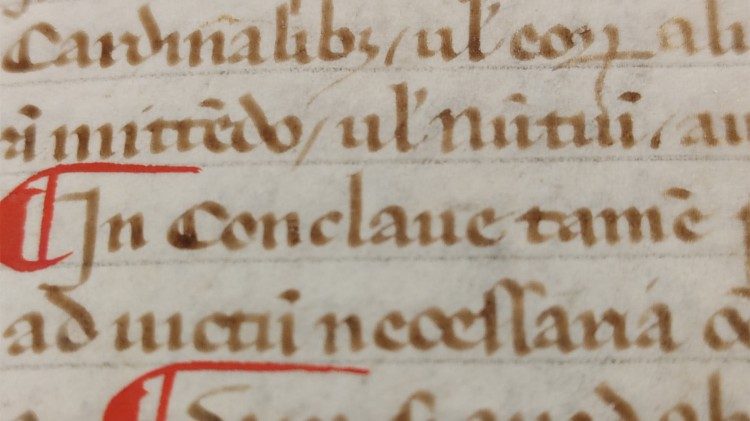 Cardinalibꝫ / ul̕ eoꝝ ali
mittēdo / ul̕ Nūtiū / au
¶ In Conclaue tamē
ad uictū necessaria